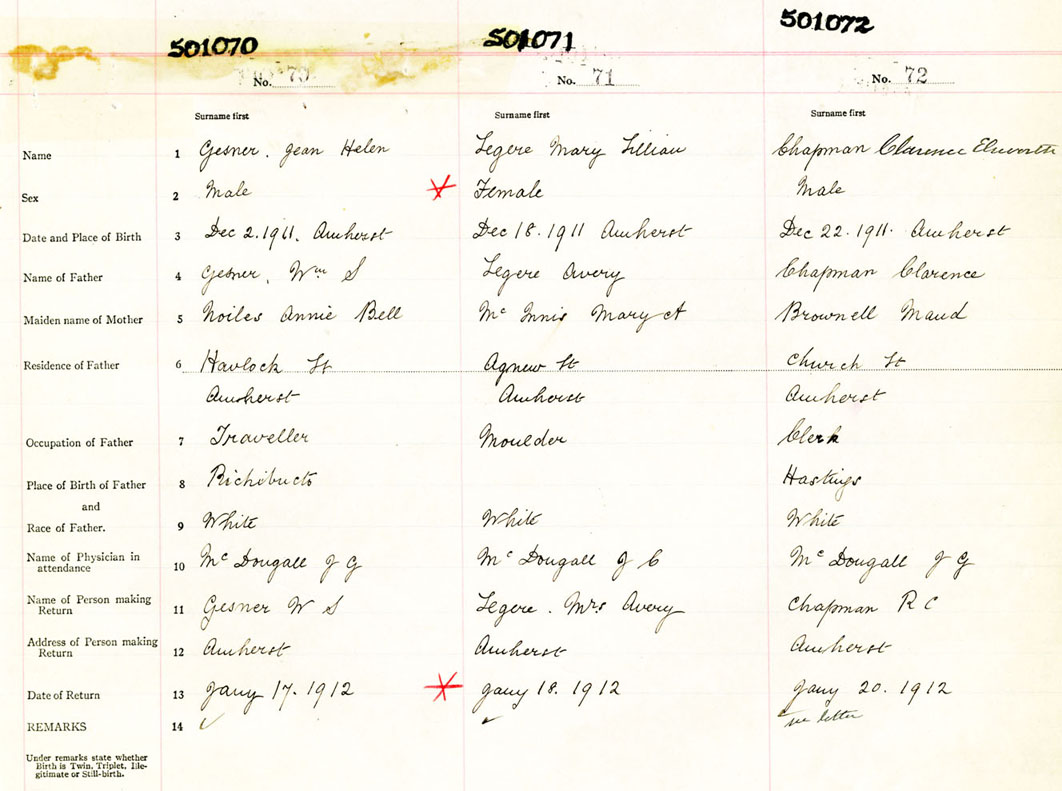 501070 501071 501072
No. 70 No. 71 No. 72
Surname first Surname first Surname first
Name 1 Gesner. Jean Helen Legere Mary Lillian Chapman Clarence Elsworth
Sex 2 Male Female Male
Date and Place of Birth 3 Dec 2. 1911. Amherst Dec 18. 1911 Amherst Dec 22. 1911. Amherst
Name of Father 4 Gesner, Wm S Legere Avery Chapman Clarence
Maiden name of Mother 5 Noiles Annie Bell Mc Innis Mary A Brownell Maud
Residence of Father 6 Havlock St Agnew St Church St
Amherst Amherst Amherst
Occupation of Father 7 Traveller Moulder Clerk
Place of Birth of Father 8 Richibucto Hastings
and
Race of Father. 9 White White White
Name of Physician in
attendance 10 Mc Dougall J G Mc Dougall J C Mc Dougall J G
Name of Person making
Return 11 Gesner W S Legere. Mrs Avery Chapman R C
Address of Person making
Return 12 Amherst Amherst Amherst
Date of Return 13 Jany 17. 1912 Jany 18. 1912 Jany 20. 1912
REMARKS 14 ✓ ✓ letter
Under remarks state whether
Birth is Twin, Triplet, Ille-
gitimate or Still-birth.